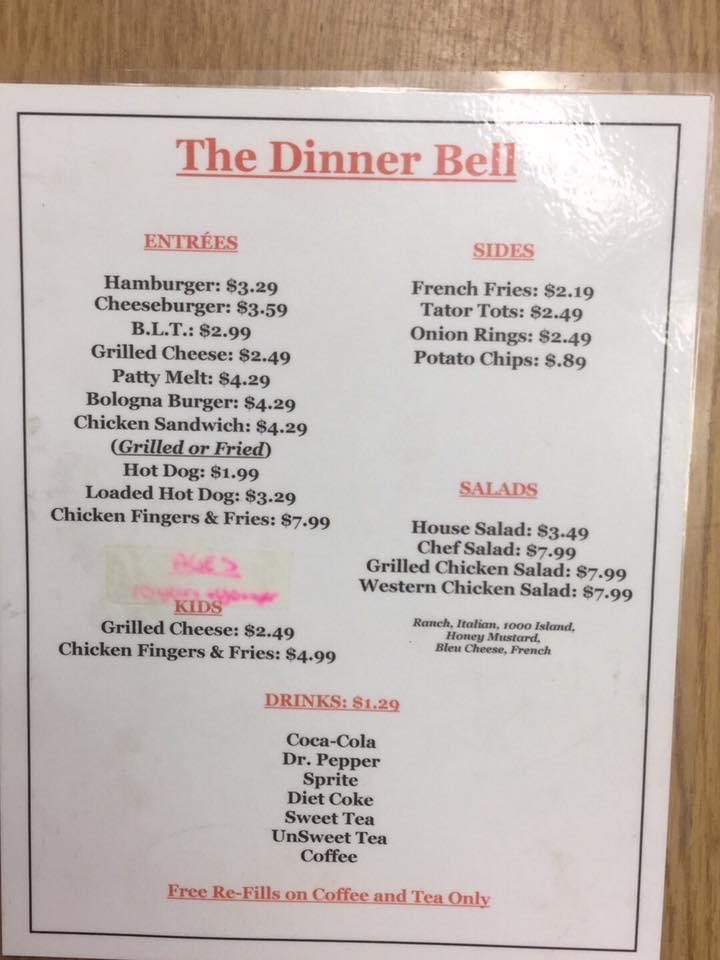 The Dinner Bell
ENTRÉES
Hamburger: $3.29
Cheeseburger: $3.59
B.L.T.: $2.99
Grilled Cheese: $2.49
Patty Melt: $4.29
Bologna Burger: $4.29
Chicken Sandwich: $4.29
(Grilled or Fried)
Hot Dog: $1.99
Loaded Hot Dog: $3.29
Chicken Fingers & Fries: $7.99
AGES
10
KIDS
Grilled Cheese: $2.49
Chicken Fingers & Fries: $4.99
SIDES
French Fries: $2.19
Tator Tots: $2.49
Onion Rings: $2.49
Potato Chips: $.89
SALADS
House Salad: $3.49
Chef Salad: $7.99
Grilled Chicken Salad: $7.99
Western Chicken Salad: $7.99
Ranch, Italian, 1000 Island,
Honey Mustard,
Bleu Cheese, French
DRINKS: $1.29
Coca-Cola
Dr. Pepper
Sprite
Diet Coke
Sweet Tea
UnSweet Tea
Coffee
Free Re-Fills on Coffee and Tea Only